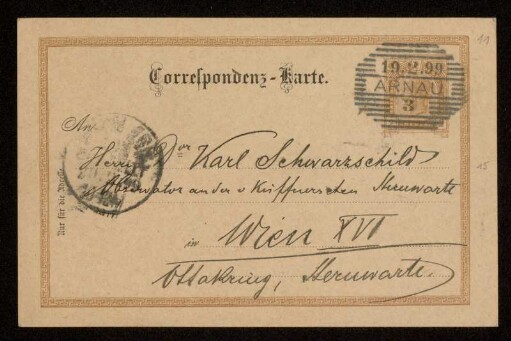 11
Correspondenz-Karte.
19.2.99
ARNAU
3
An
Herrn Dor Karl Schwarzschild
Observator an der v Kuffnerschen Sternwarte
15
in Wien XVI
Ottakring, Sternwarte.
Nur für die Adresse